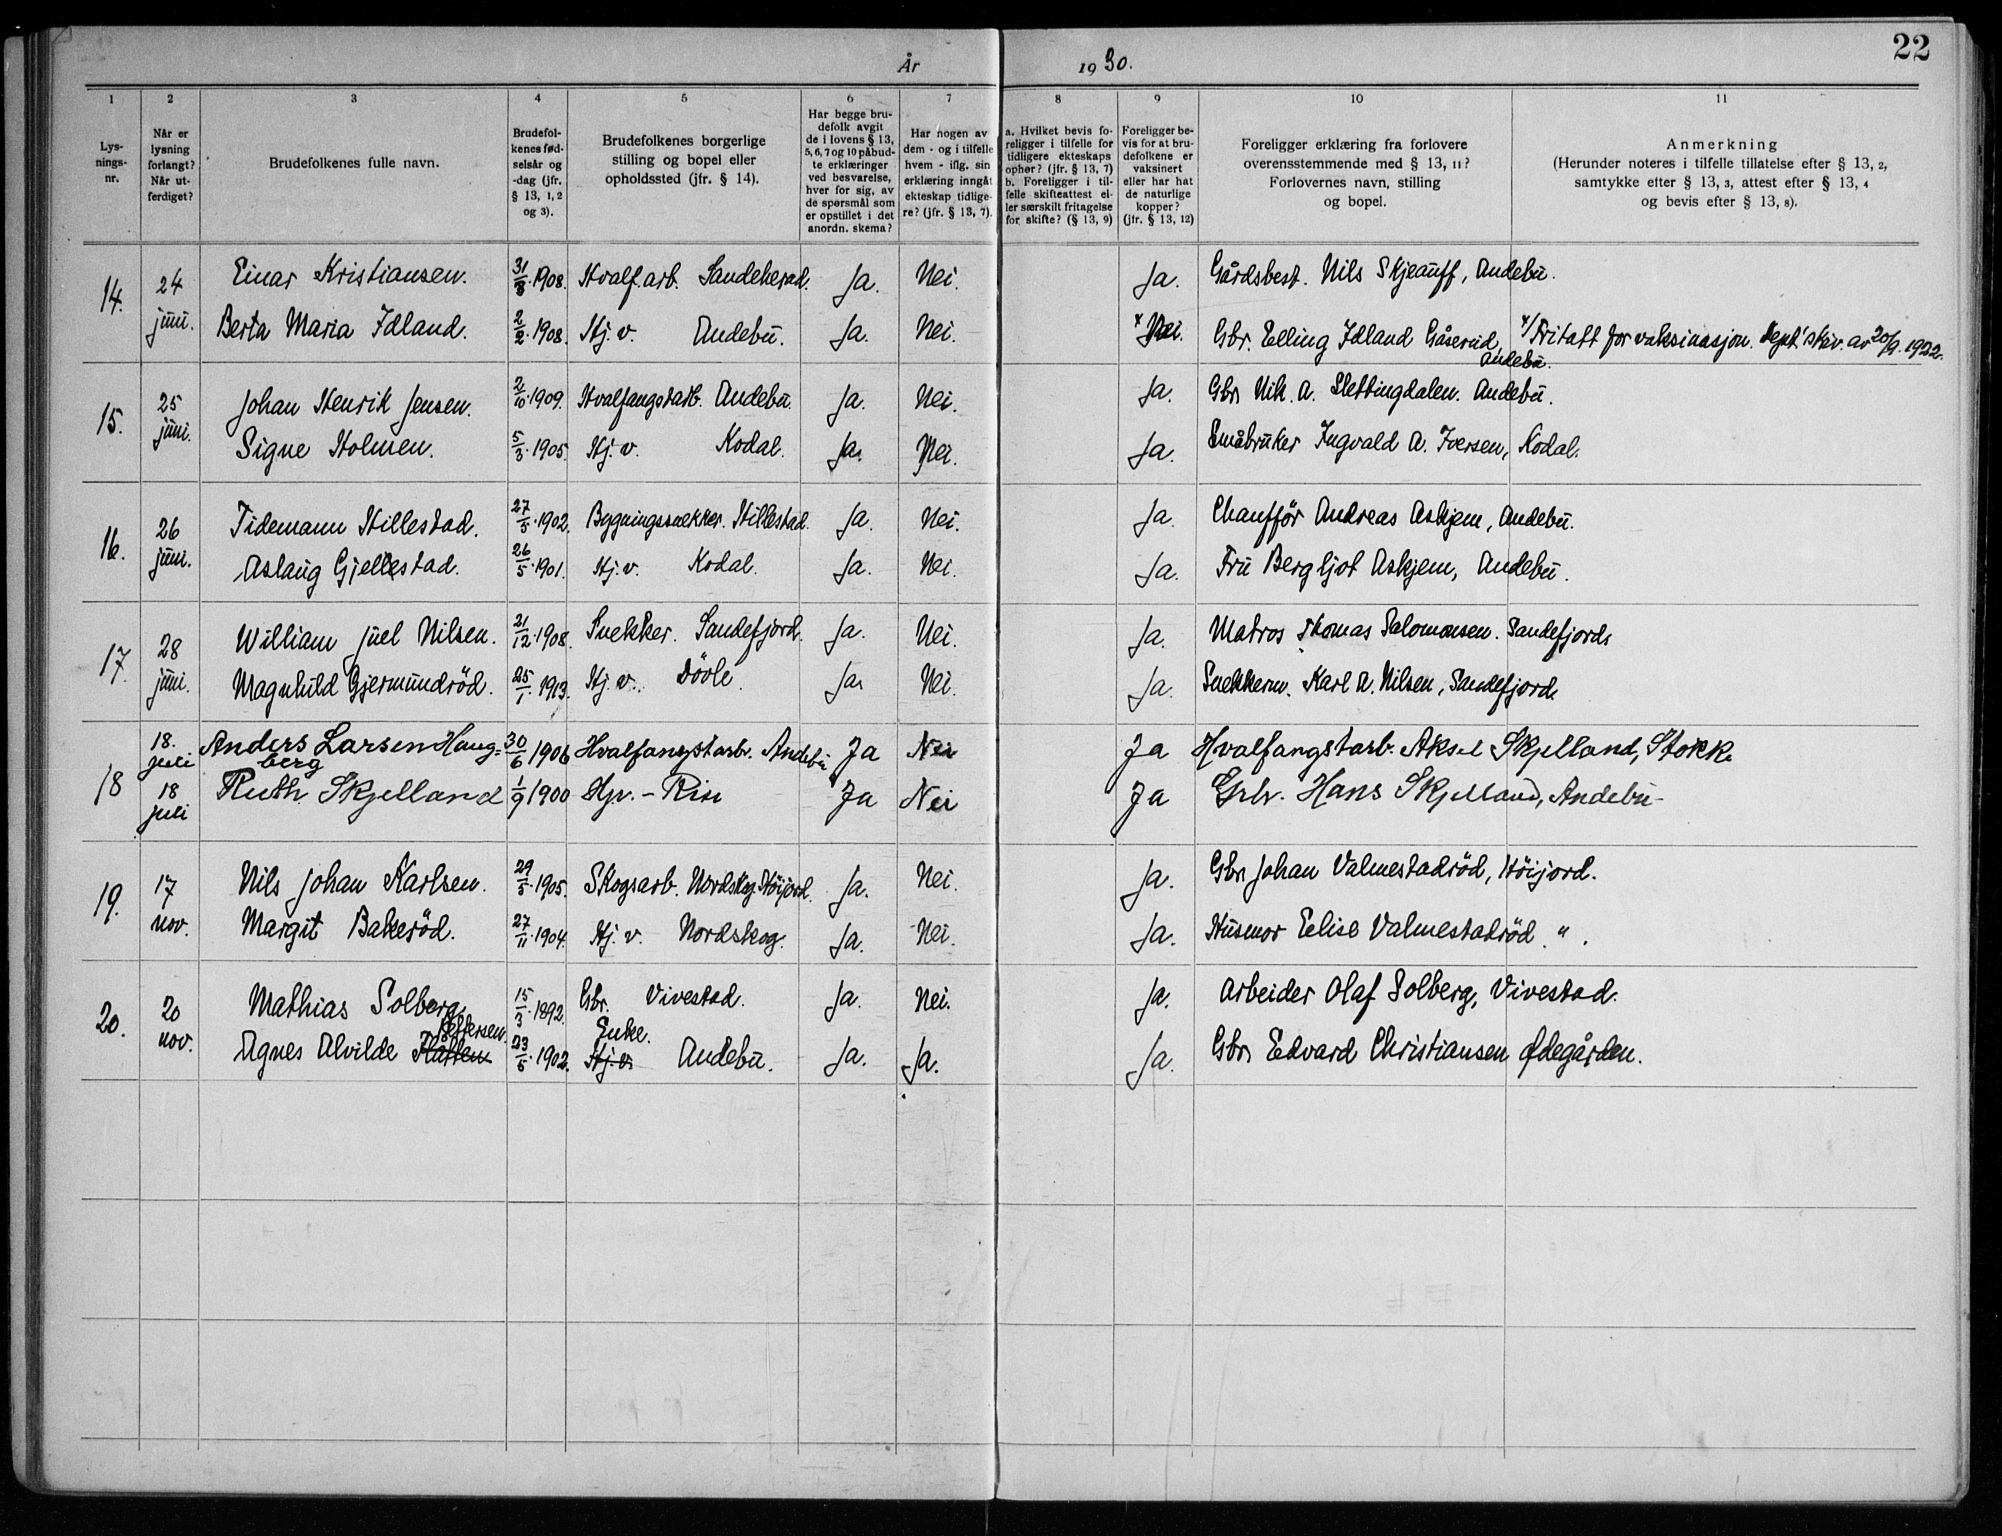 22
År 1930.
1 2 3 4 5 6 7 8 9 10 11
Lys-
nings-
nr.
Når er
lysning
forlangt?
Når ut-
ferdiget?
Brudefolkenes fulle navn.
Brudefol-
kenes fød-
selsår og
-dag (jfr.
§ 13, 1, 2
og 3).
Brudefolkenes borgerlige
stilling og bopel eller
opholdssted (jfr. § 14).
Har begge bru-
defolk avgit
de i lovens § 13,
5, 6, 7 og 10 påbud-
te erklæringer
ved besvarelse,
hver for sig, av
de spørsmål som
er opstillet i det
anordn. skema?
Har nogen av
dem - og i tilfelle
hvem - iflg. sin
erklæring inngåt
ekteskap tidlige-
re? (jfr. § 13, 7).
a. Hvilket bevis fo-
religger i tilfelle for
tidligere ekteskaps
ophør? (jfr. § 13, 7)
b. Foreligger i til-
felle skifteattest el-
ler særskilt fritagelse
for skifte? (§ 13, 9)
Foreligger be-
vis for at bru-
defolkene er
vaksinert
eller har hat
de naturlige
kopper?
(jfr. § 13, 12)
Foreligger erklæring fra forlovere
overensstemmende med § 13, 11?
Forlovernes navn, stilling
og bopel.
Anmerkning
(Herunder noteres i tilfelle tillatelse efter § 13, 2,
samtykke efter § 13, 3, attest efter § 13, 4
og bevis efter § 13, 8).
14. 24 juni. Einar Kristiansen. 31/8 1908. Hvalf.arb. Sandeherad. Ja. Nei. Ja. Gårdsbest. Nils Skjeauff, Andebu.
Berta Maria Idland. 2/2 1908. Hj.v. Andebu. Ja. Nei. x Nei. Gbr. Elling Idland Gåserud, Andebu. x/ Fritatt for vaksinasjon. Dept' skiv. av 20/9. 1922.
15. 25 juni. Johan Henrik Jensen. 2/10 1909. Hvalfangstarb. Andebu. Ja. Nei. Ja. Gbr. Nik. A. Slettingdalen. Andebu.
Signe Holmen. 5/3 1905. Hj.v. Kodal. Ja. Nei. Ja. Småbruker Ingvald A. Iversen, Kodal.
16. 26 juni. Tidemann Hillestad. 27/5 1902. Bygningssnekker. Hillestad. Ja. Nei. Ja. Chauffør Andreas Askjem, Andebu.
Aslaug Gjellestad. 26/5 1901. Hj.v. Kodal. Ja. Nei. Ja. Fru Bergljot Askjem, Andebu.
17. 28 juni. William Juel Nilsen. 21/12 1908. Snekker. Sandefjord. Ja. Nei. Ja. Matros Thomas Salomonsen. Sandefjord.
Magnhild Gjermundrød. 25/1 1913. Hj.v. Døvle. Ja. Nei. Ja. Snekkerm. Karl A. Nilsen, Sandefjord.
18 18. juli Anders Larsen Haug=
berg 30/6 1906 Hvalfangstarb. Andebu Ja Nei Ja Hvalfangstarb. Aksel Skjelland, Stokke
18 juli Ruth Skjelland 1/9 1900 Hjv. - Rise Ja Nei Ja Gbr. Hans Skjelland, Andebu
19. 17 nov. Nils Johan Karlsen. 29/5 1905. Skogsarb. Nordskog. Høijord. Ja. Nei. Ja. Gbr. Johan Valmestadrød, Høijord.
Margit Bakerød. 27/11 1904. Hj.v. Nordskog. Ja. Nei. Ja. Husmor Elise Valmestadrød „ .
20. 20 nov. Mathias Solberg. 15/3 1892. Gbr. Vivestad. Ja. Nei. Ja. Arbeider Olaf Solberg, Vivestad.
Agnes Alvilde Pettersen. 23/5 1902. Enke. Hj.v. Andebu. Ja. Ja. Ja. Gbr. Edvard Christiansen Ødegården.